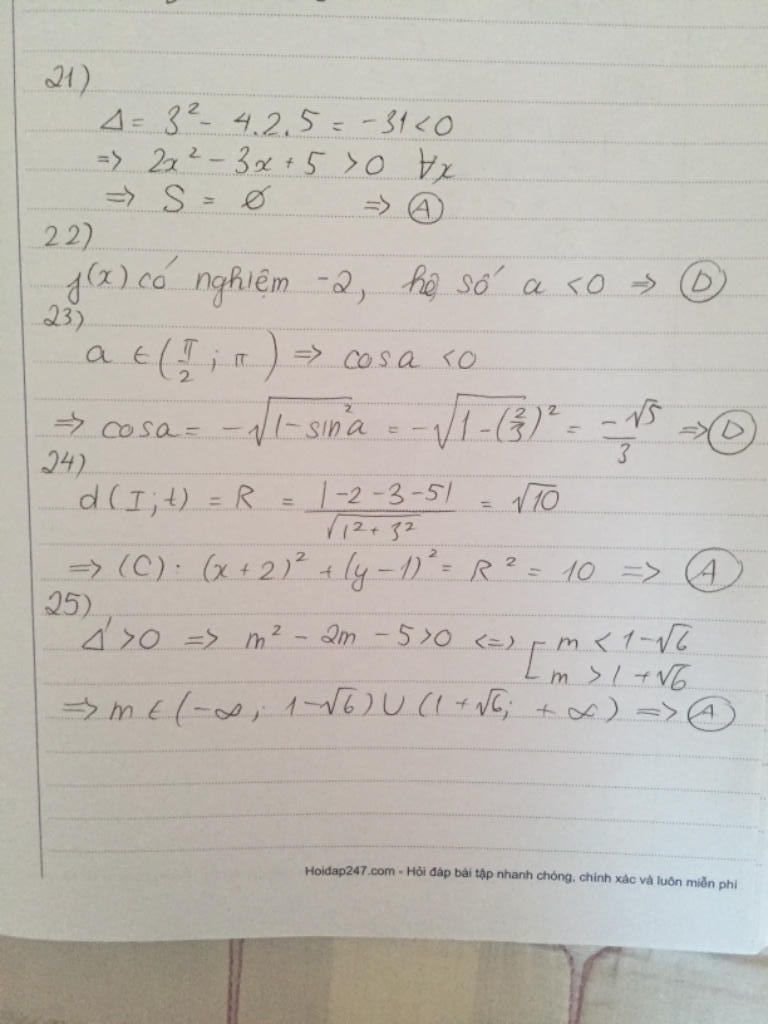 21)
Δ = 3² - 4.2.5 = -31 < 0
=> 2x² - 3x + 5 > 0 ∀x
=> S = ∅ => Ⓐ
22)
f(x) có nghiệm -2, hệ số a < 0 => Ⓓ
23)
a ∈ (π/2 ; π) => cosa < 0
=> cosa = -√(1-sin²a) = -√(1-(2/3)²) = -√5/3 => Ⓓ
24)
d(I;t) = R = |-2-3-5|/√(1²+3²) = √10
=> (C): (x+2)² + (y-1)² = R² = 10 => Ⓐ
25)
Δ' > 0 => m² - 2m - 5 > 0 <=> [ m < 1-√6
m > 1+√6
=> m ∈ (-∞; 1-√6) ∪ (1+√6; +∞) => Ⓐ
Hoidap247.com - Hỏi đáp bài tập nhanh chóng, chính xác và luôn miễn phí